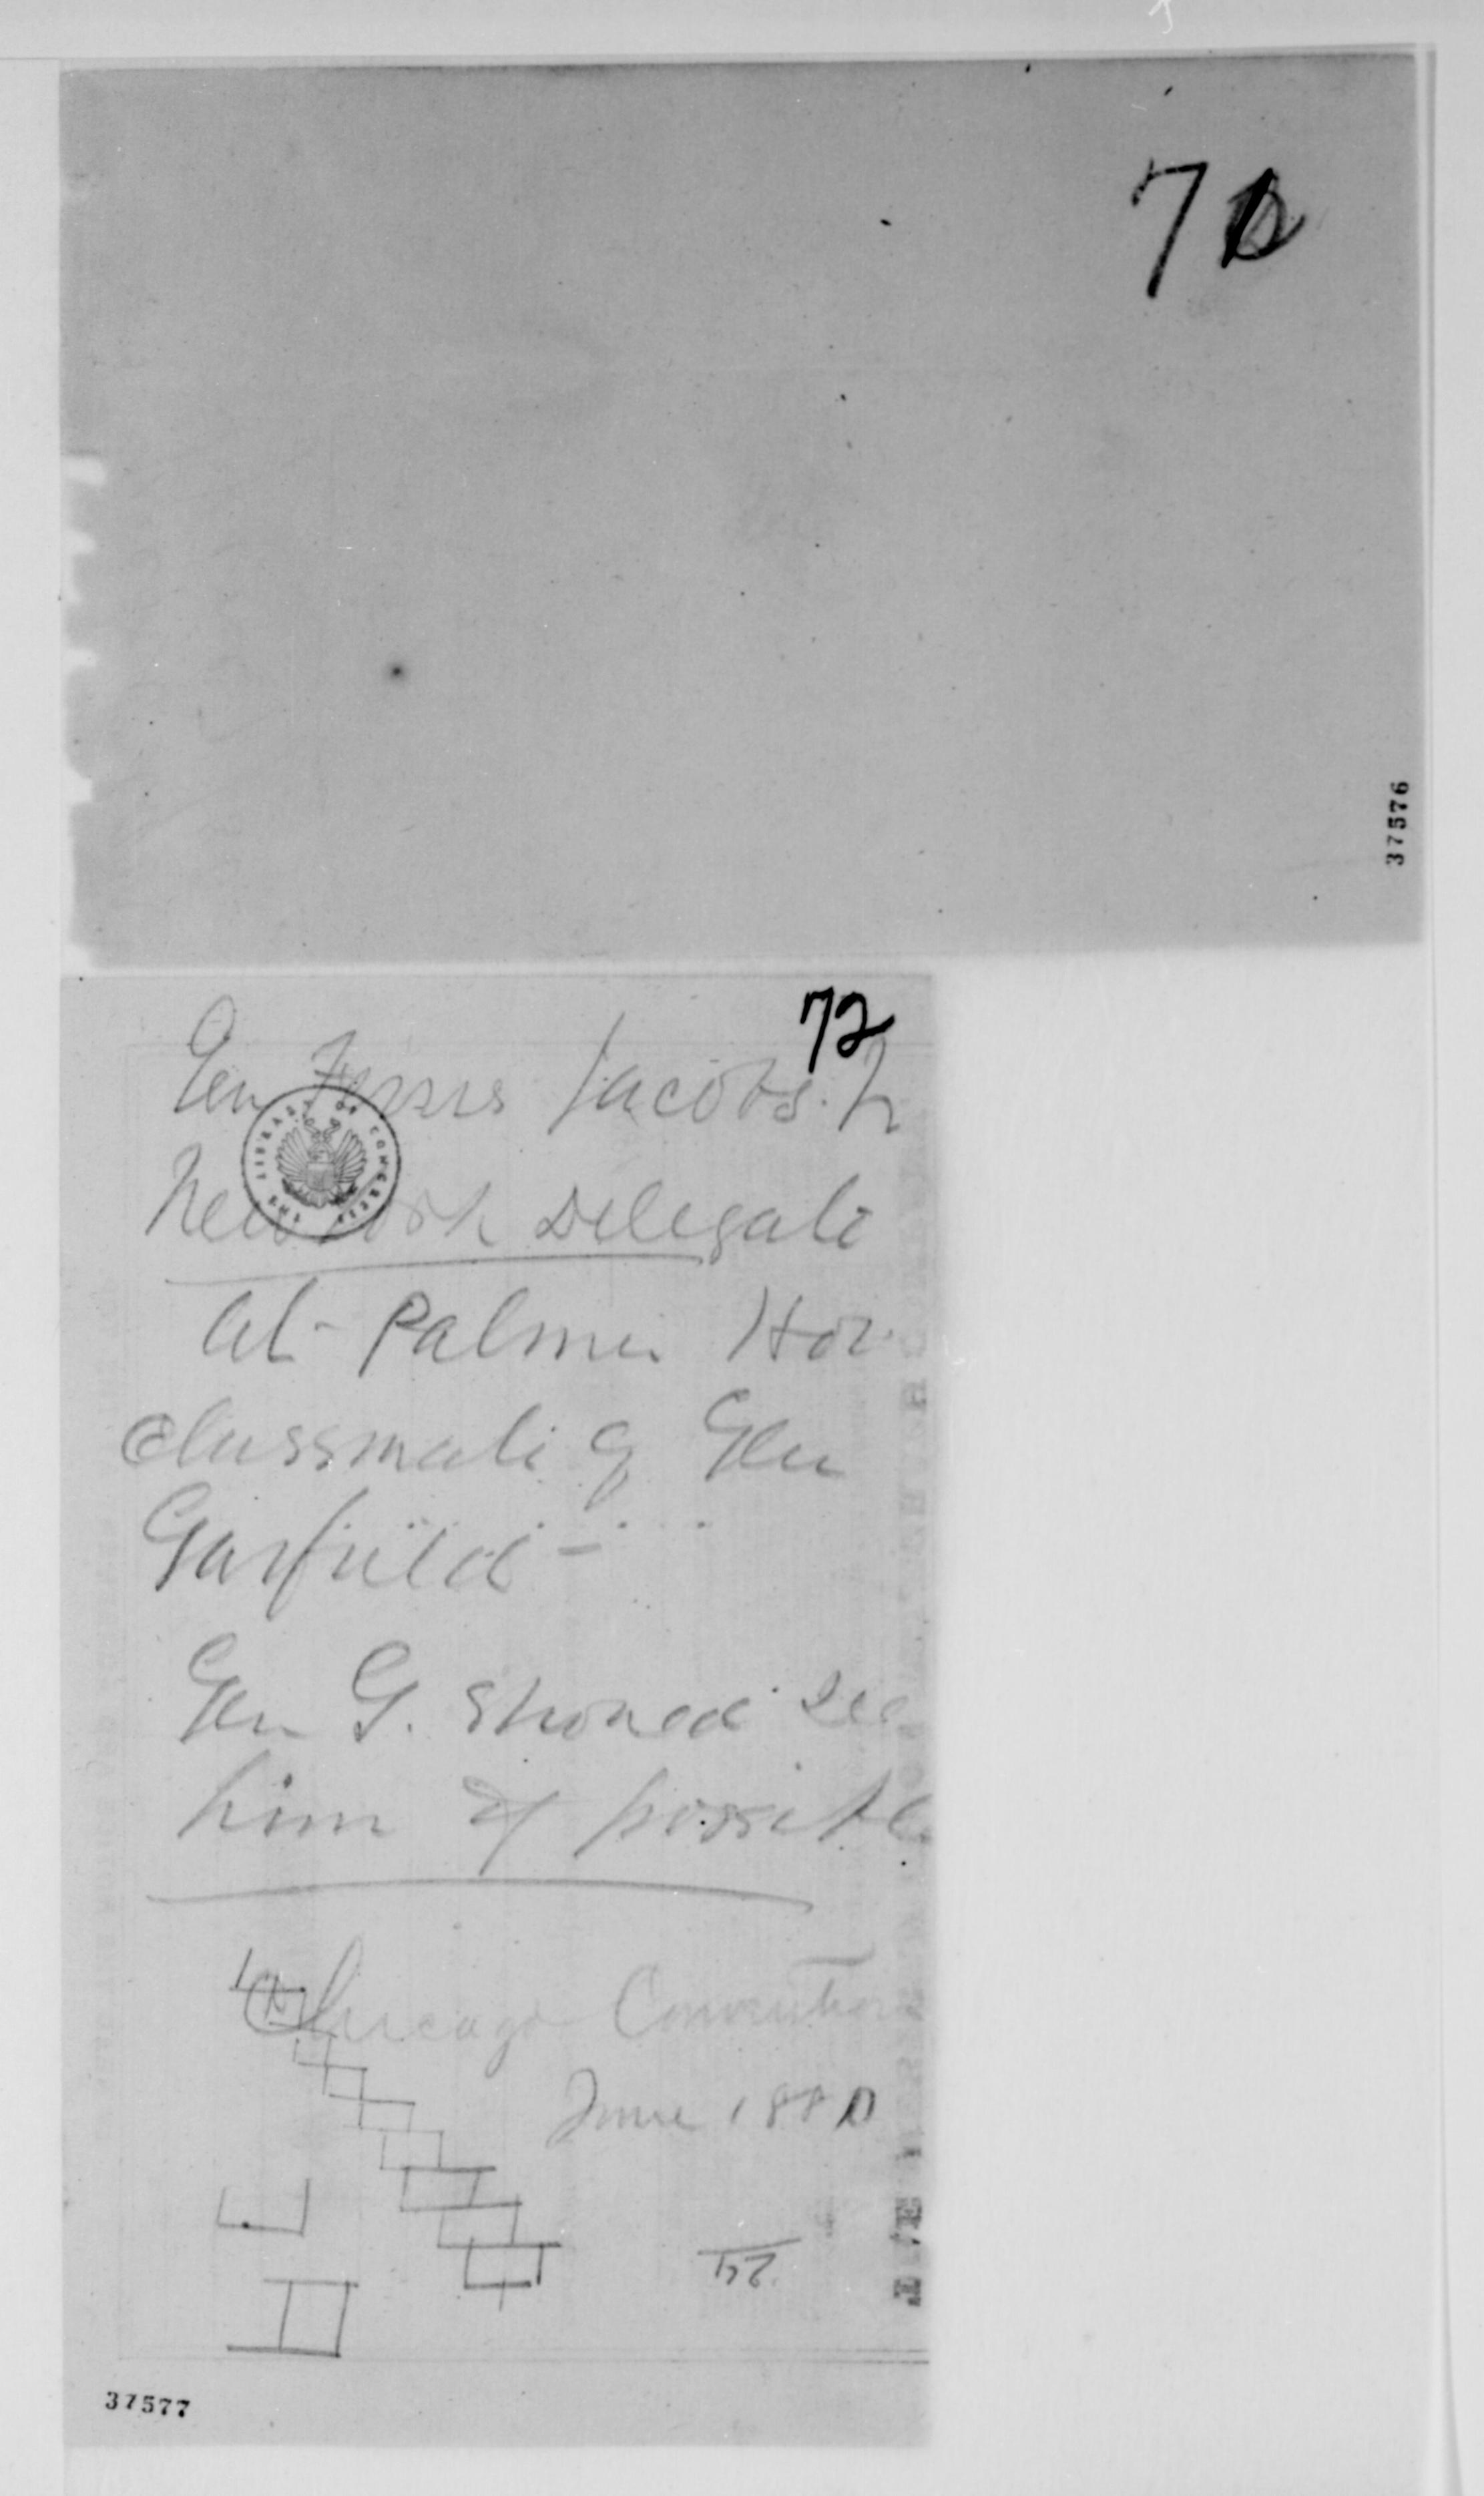 37576
72
Gen Ferris Jacobs Jr
New York Delegate
at Palmer Hou
classmate of Gen
Garfield -
Gen G. should see
him if possible
Chicago Convention
June 1880
THE LIBRARY OF CONGRESS
37577